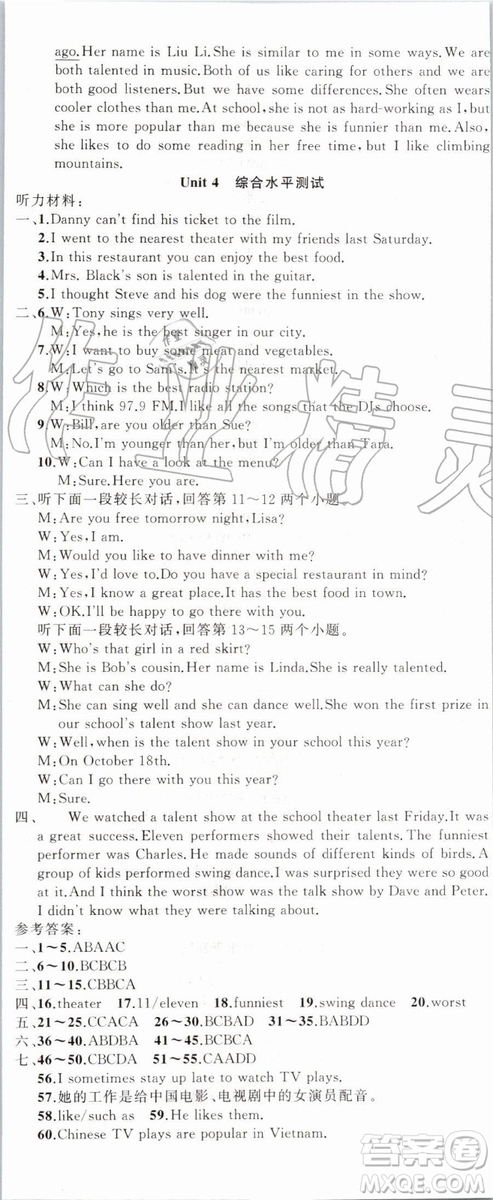 ago.Her name is Liu Li.She is similar to me in some ways.We are
both talented in music.Both of us like caring for others and we are
both good listeners.But we have some differences.She often wears
cooler clothes than me.At school,she is not as hard-working as I,but
she is more popular than me because she is funnier than me.
Also,she likes to do some reading in her free time,but I like climbing
mountains.
Unit 4 综合水平测试
听力材料:
一、1.Danny can't find his ticket to the film.
2.I went to the nearest theater with my friends last Saturday.
3.In this restaurant you can enjoy the best food.
4.Mrs. Black's son is talented in the guitar.
5.I thought Steve and his dog were the funniest in the show.
二、6.W:Tony sings very well.
M:Yes,he is the best singer in our city.
7.W:I want to buy some meat and vegetables.
M:Let's go to Sam's.It's the nearest market.
8.W:Which is the best radio station?
M:I think 97.9 FM.I like all the songs that the DJs choose.
9.W:Bill,are you older than Sue?
M:No.I'm younger than her,but I'm older than Tara.
10.W:Can I have a look at the menu?
M:Sure.Here you are.
三、听下面一段较长对话,回答第11～12两个小题。
M:Are you free tomorrow night,Lisa?
W:Yes,I am.
M:Would you like to have dinner with me?
W:Yes,I'd love to.Do you have a special restaurant in mind?
M:Yes,I know a great place.It has the best food in town.
W:OK.I'll be happy to go there with you.
听下面一段较长对话,回答第13～15两个小题。
W:Who's that girl in a red skirt?
M:She is Bob's cousin.Her name is Linda.She is really talented.
W:What can she do?
M:She can sing well and she can dance well.She won the first prize in
our school's talent show last year.
W:Well,when is the talent show in your school this year?
M:On October 18th.
W:Can I go there with you this year?
M:Sure.
四、 We watched a talent show at the school theater last Friday.It was
a great success.Eleven performers showed their talents.The funniest
performer was Charles.He made sounds of different kinds of birds.A
group of kids performed swing dance.I was surprised they were so good
at it.And I think the worst show was the talk show by Dave and Peter.
I didn't know what they were talking about.
参考答案:
一、1～5.ABAAC
二、6～10.BCBCB
三、11～15.CBBCA
四、16.theater 17.11/eleven 18.funniest 19.swing dance 20.worst
五、21～25.CCACA 26～30.BCBAD 31～35.BABDD
六、36～40.ABDBA 41～45.BCBCD
七、46～50.CBCDA 51～55.CAADD
56.I sometimes stay up late to watch TV plays.
57.她的工作是给中国电影、电视剧中的女演员配音。
58.like/such as 59.He likes them.
60.Chinese TV plays are popular in Vietnam.
作业精灵
答案圈